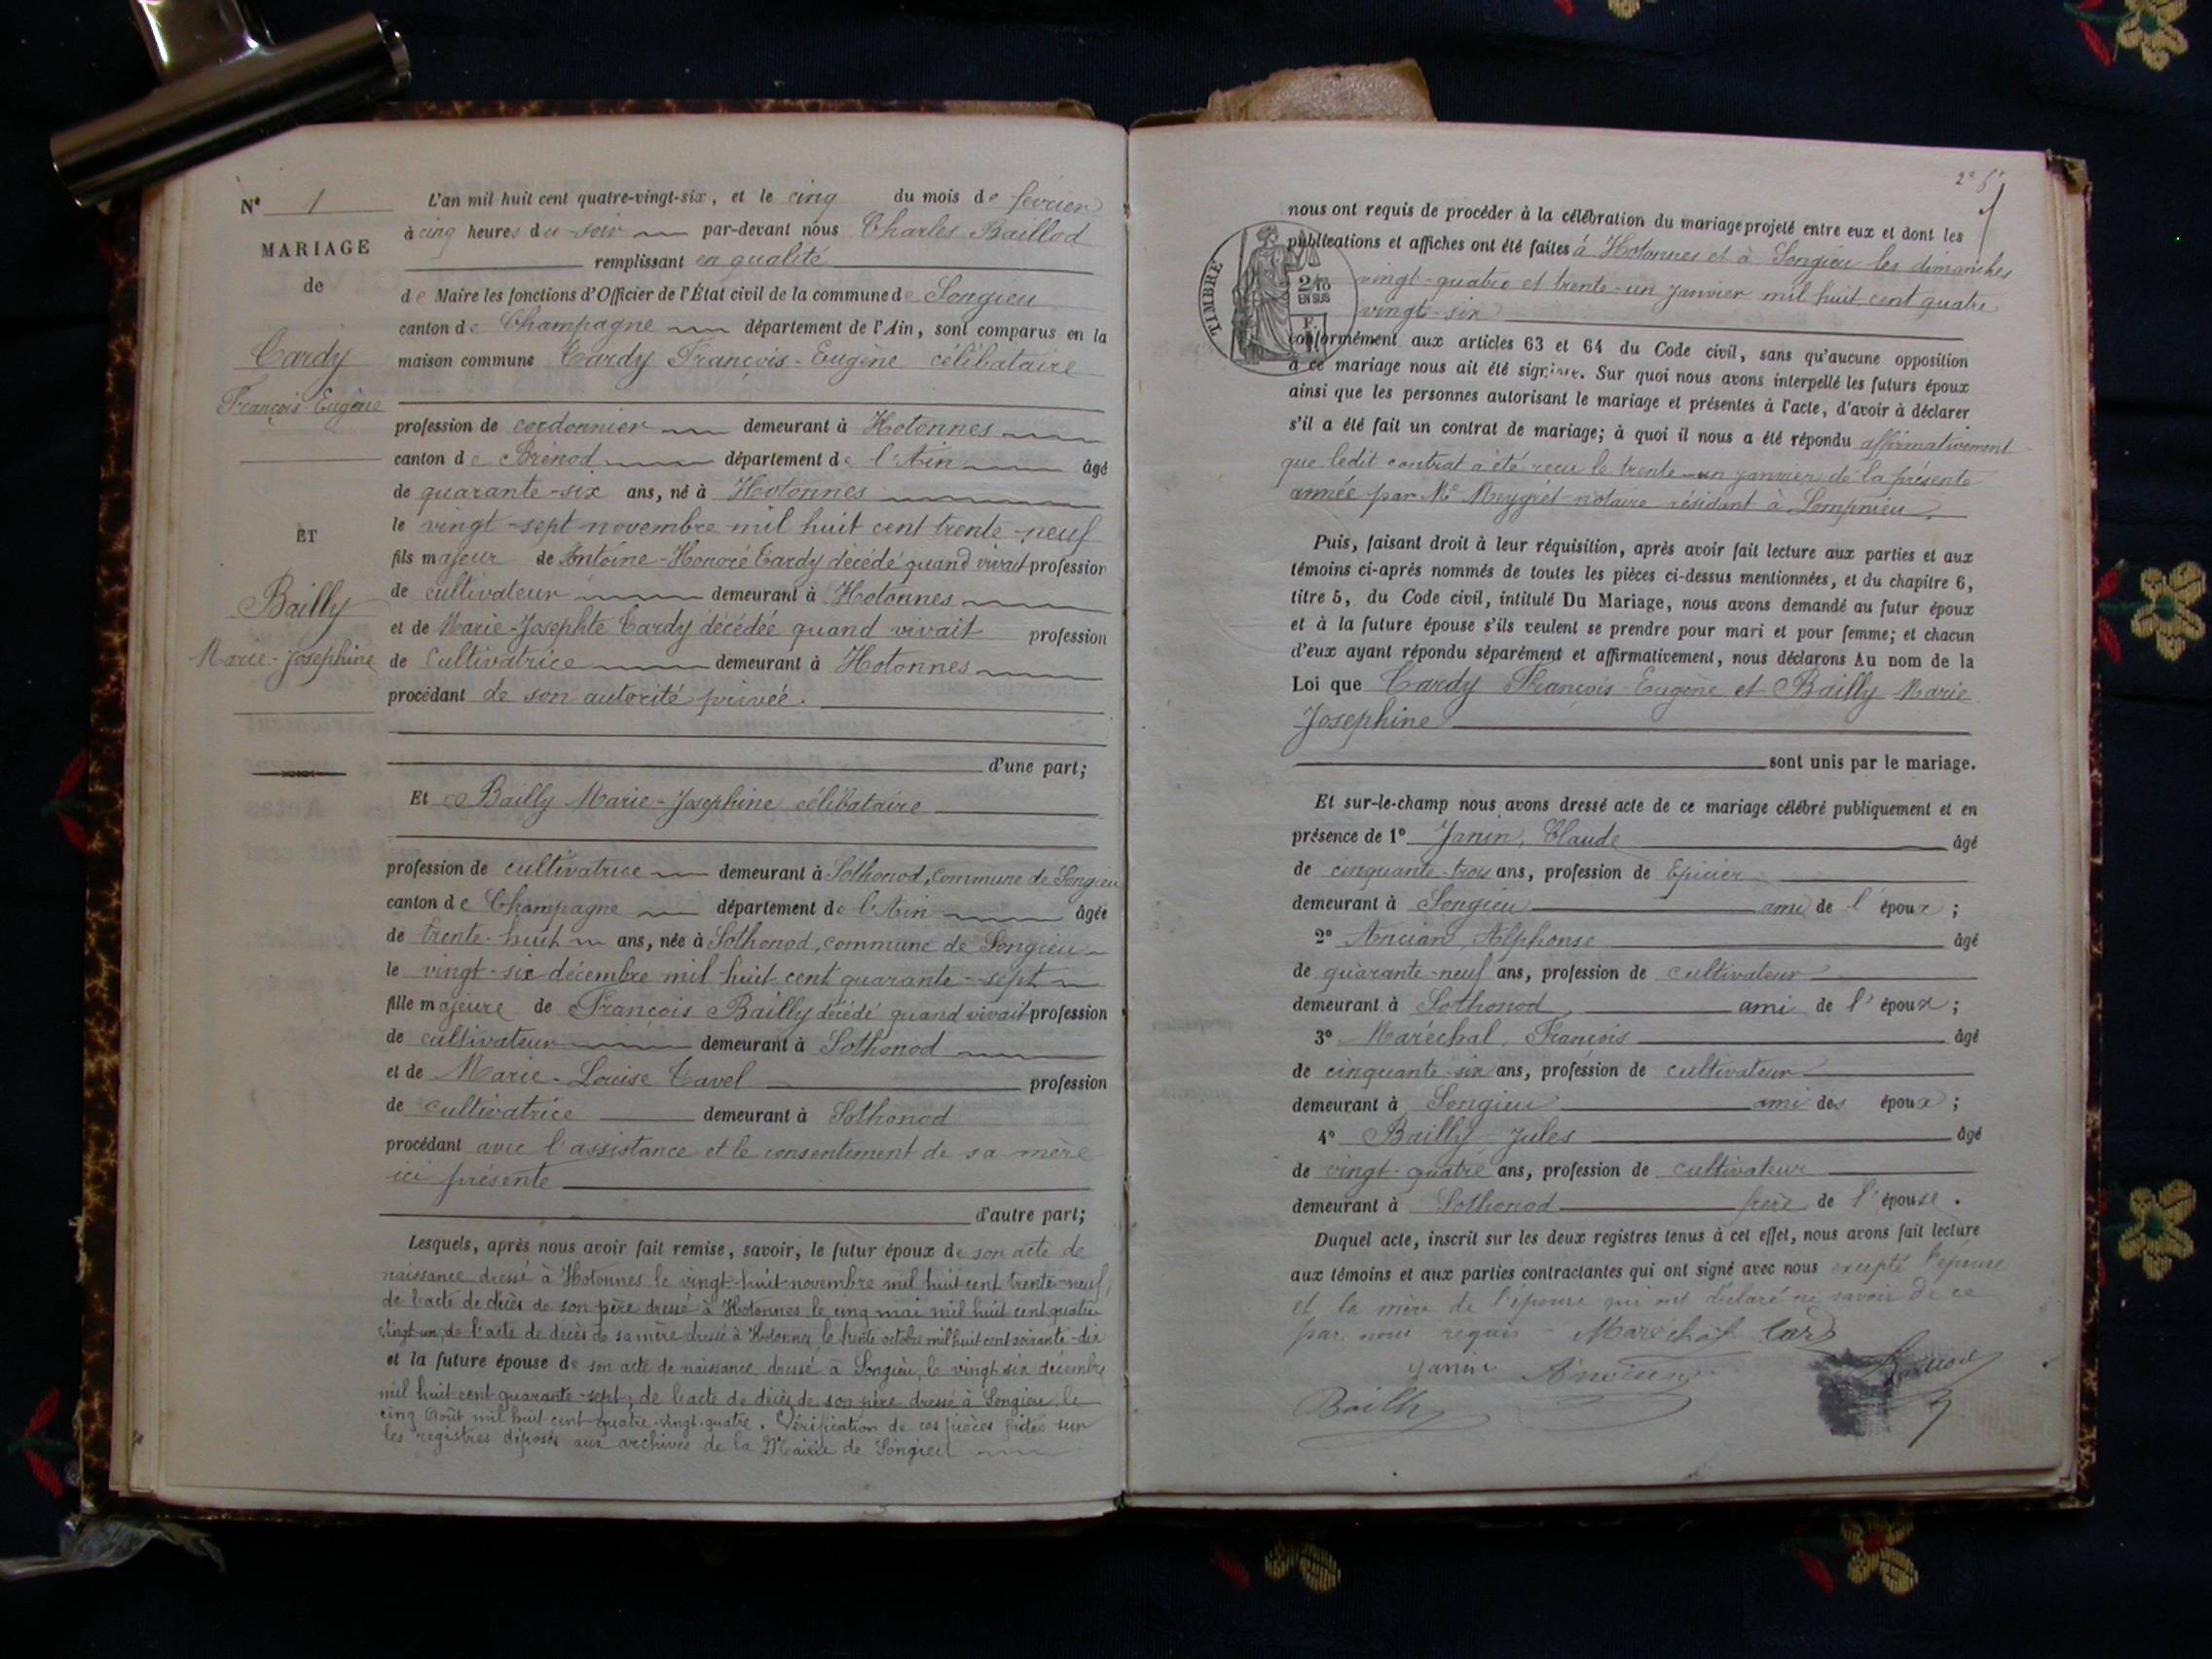 N° 1
MARIAGE
de
Cardy
François-Eugène
ET
Bailly
Marie-Josephine
L'an mil huit cent quatre-vingt-six, et le cinq du mois de février
à cinq heures du soir par-devant nous Charles Baillod
remplissant en qualité
de Maire les fonctions d'Officier de l'État civil de la commune de Songieu
canton de Champagne département de l'Ain, sont comparus en la
maison commune Cardy François-Eugène célibataire
profession de cordonnier demeurant à Hotonnes
canton de Brénod département de l'Ain âgé
de quarante-six ans, né à Hotonnes
le vingt-sept novembre mil huit cent trente-neuf
fils majeur de Antoine-Honoré Cardy décédé quand vivait profession
de cultivateur demeurant à Hotonnes
et de Marie-Josephte Cardy décédée quand vivait profession
de Cultivatrice demeurant à Hotonnes
procédant de son autorité privée.
d'une part;
Et Bailly Marie-Josephine célibataire
profession de cultivatrice demeurant à Sothonod, commune de Songieu
canton de Champagne département de l'Ain âgée
de trente-huit ans, née à Sothonod, commune de Songieu
le vingt-six décembre mil huit cent quarante-sept
fille majeure de François Bailly décédé quand vivait profession
de cultivateur demeurant à Sothonod
et de Marie-Louise Cavel profession
de cultivatrice demeurant à Sothonod
procédant avec l'assistance et le consentement de sa mère
ici présente
d'autre part;
Lesquels, après nous avoir fait remise, savoir, le futur époux de son acte de
naissance dressé à Hotonnes le vingt-huit novembre mil huit cent trente-neuf,
de l'acte de décès de son père dressé à Hotonnes le cinq mai mil huit cent quatre
vingt-un, de l'acte de décès de sa mère dressé à Hotonnes le trente octobre mil huit cent soixante-dix
et la future épouse de son acte de naissance dressé à Songieu, le vingt six décembre
mil huit cent quarante-sept, de l'acte de décès de son père dressé à Songieu, le
cinq Août mil huit cent quatre-vingt-quatre. Vérification de ces pièces faites sur
les registres déposés aux archives de la Mairie de Songieu
TIMBRE
2/10
EN SUS
nous ont requis de procéder à la célébration du mariage projeté entre eux et dont les
publications et affiches ont été faites à Hotonnes et à Songieu les dimanches
vingt-quatre et trente-un janvier mil huit cent quatre
vingt-six
conformément aux articles 63 et 64 du Code civil, sans qu'aucune opposition
à ce mariage nous ait été signifiée. Sur quoi nous avons interpellé les futurs époux
ainsi que les personnes autorisant le mariage et présentes à l'acte, d'avoir à déclarer
s'il a été fait un contrat de mariage; à quoi il nous a été répondu affirmativement
que ledit contrat a été reçu le trente-un janvier de la présente
année par Me Meygret notaire résidant à Lompnieu.
Puis, faisant droit à leur réquisition, après avoir fait lecture aux parties et aux
témoins ci-après nommés de toutes les pièces ci-dessus mentionnées, et du chapitre 6,
titre 5, du Code civil, intitulé Du Mariage, nous avons demandé au futur époux
et à la future épouse s'ils veulent se prendre pour mari et pour femme; et chacun
d'eux ayant répondu séparément et affirmativement, nous déclarons Au nom de la
Loi que Cardy François-Eugène et Bailly Marie
Josephine
sont unis par le mariage.
Et sur-le-champ nous avons dressé acte de ce mariage célébré publiquement et en
présence de 1° Janin, Claude âgé
de cinquante-trois ans, profession de Epicier
demeurant à Songieu ami de l'époux;
2° Ancian, Alphonse âgé
de quarante-neuf ans, profession de cultivateur
demeurant à Sothonod, ami de l'époux;
3° Maréchal, François âgé
de cinquante-six ans, profession de cultivateur
demeurant à Songieu ami des époux;
4° Bailly Jules âgé
de vingt-quatre ans, profession de cultivateur
demeurant à Sothonod frère de l'épouse.
Duquel acte, inscrit sur les deux registres tenus à cet effet, nous avons fait lecture
aux témoins et aux parties contractantes qui ont signé avec nous excepté l'épouse
et la mère de l'épouse qui ont déclaré ne savoir de ce
par nous requis Maréchal
Janin Ancian
Bailly